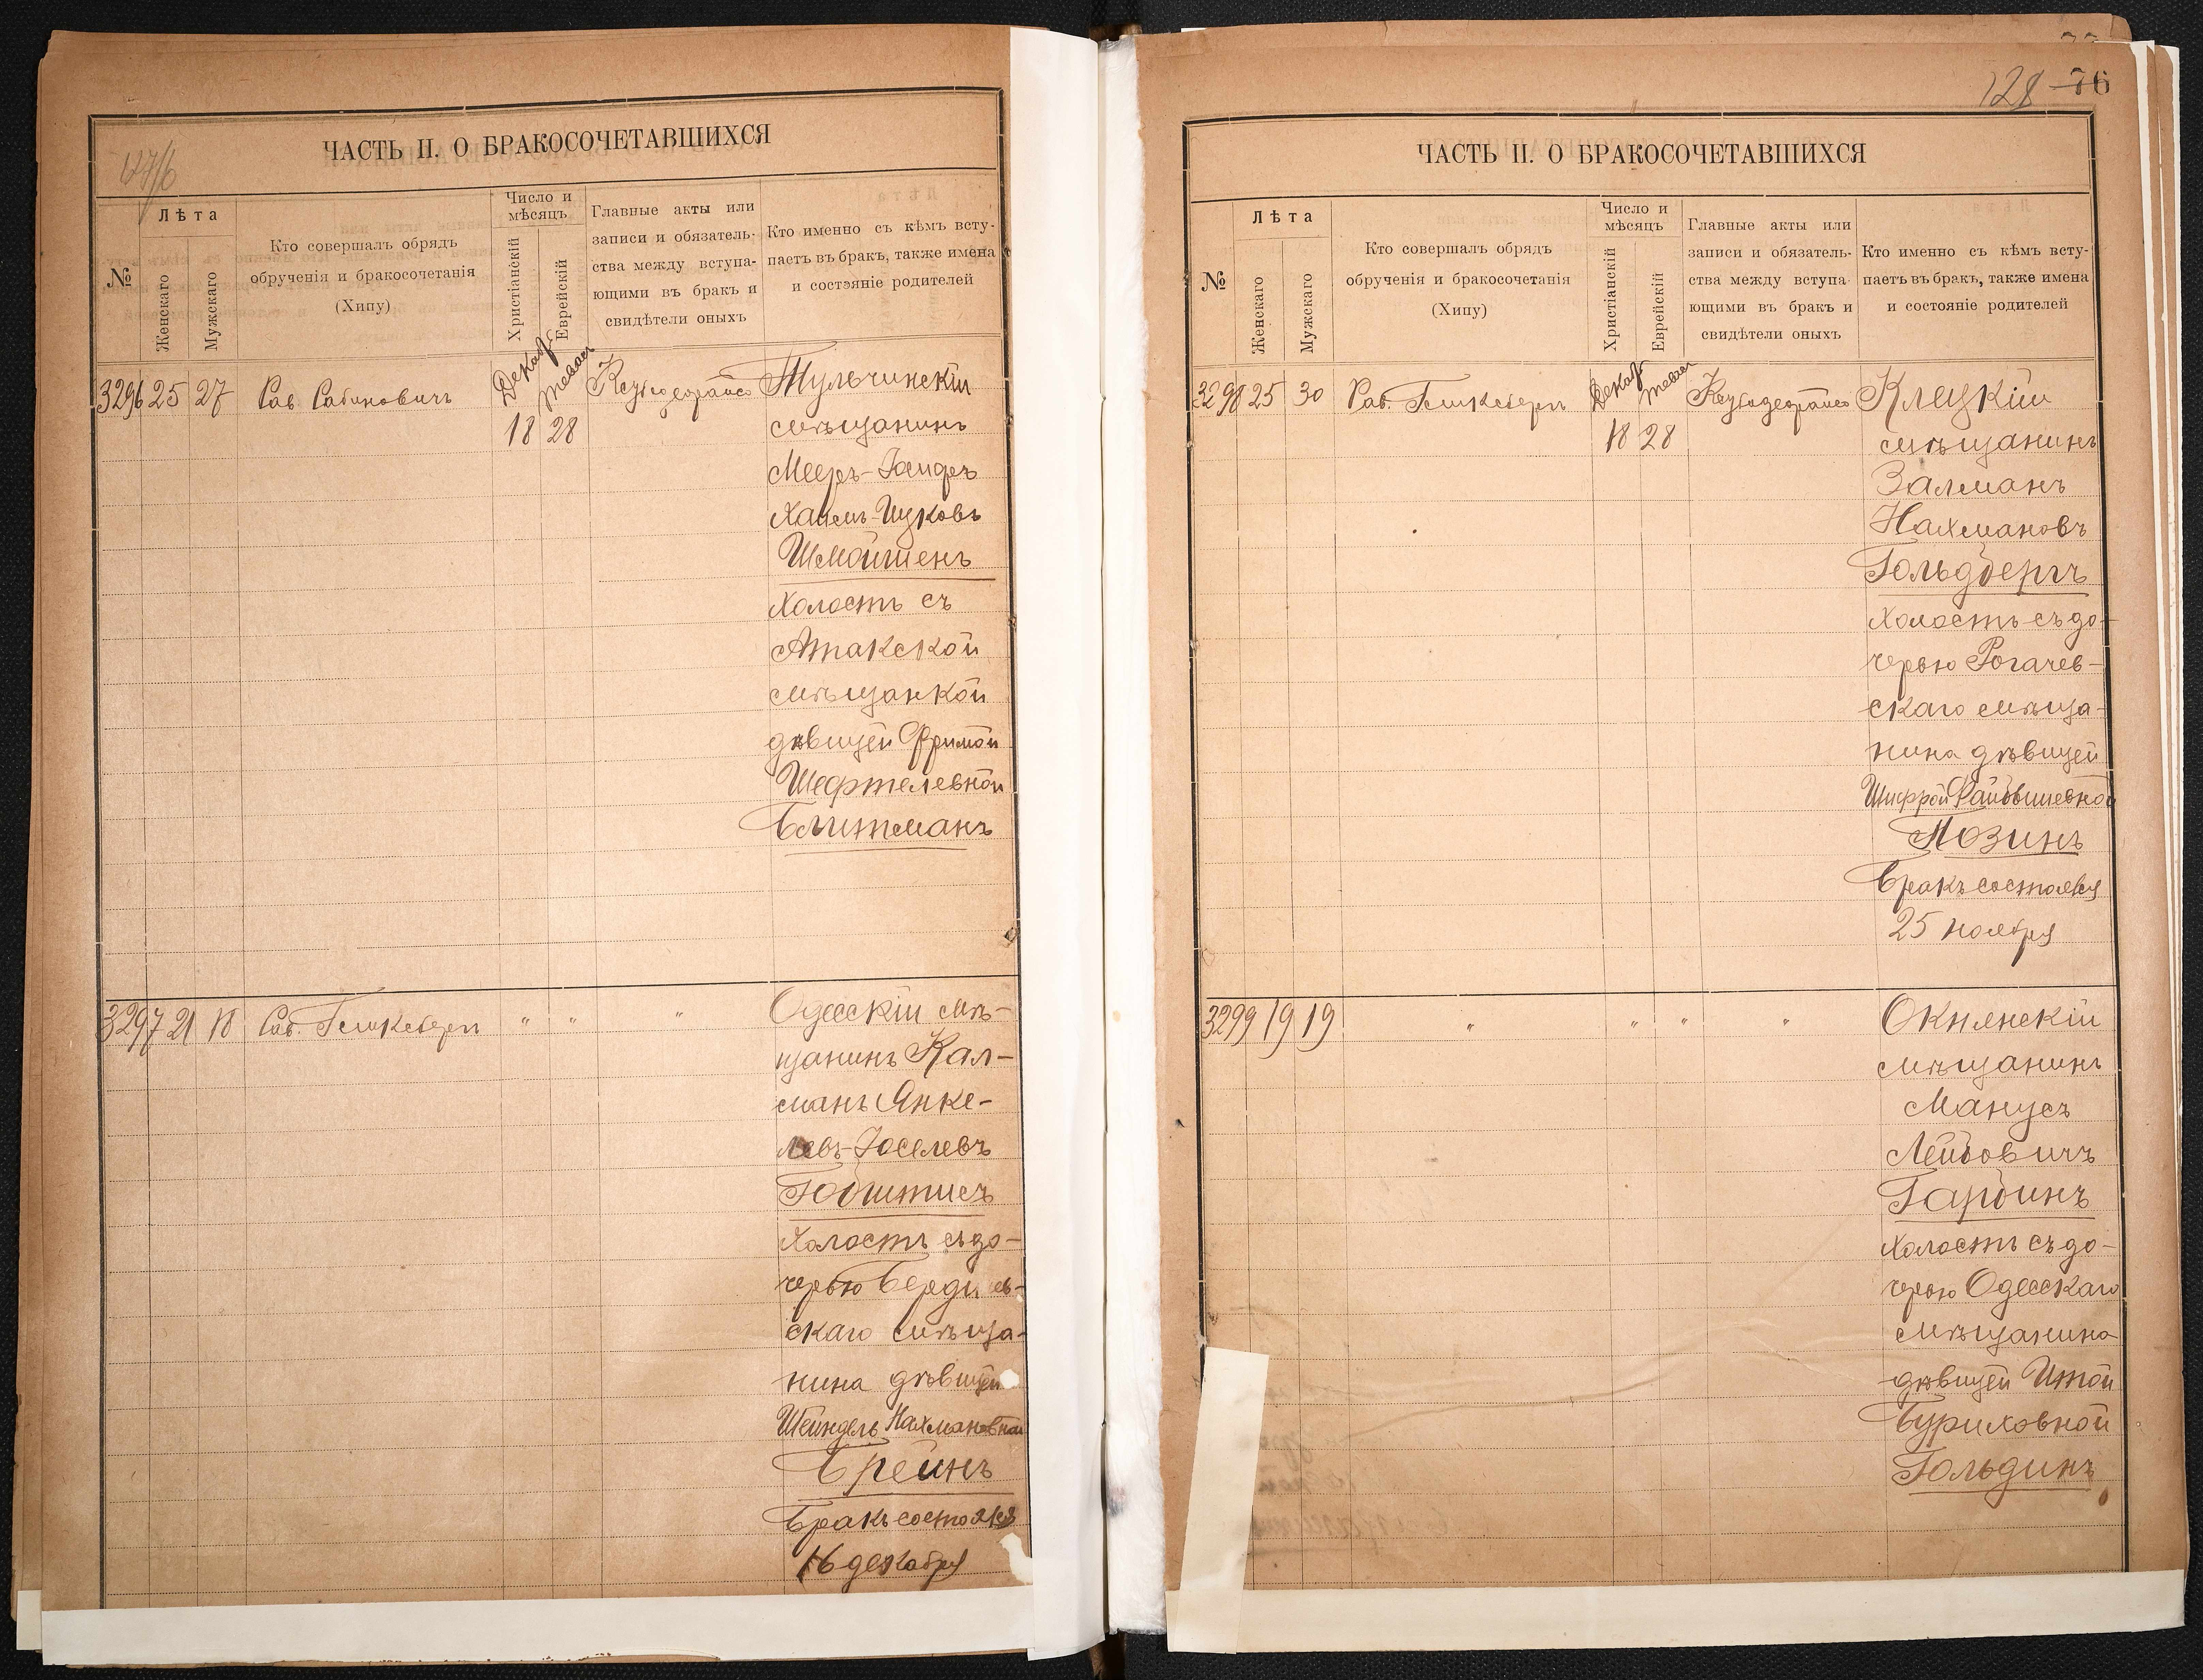 127/б
ЧАСТЬ II. О БРАКОСОЧЕТАВШИХСЯ
№
Лѣта
Женскаго
Мужскаго
Кто совершалъ обрядъ
обрученія и бракосочетанія
(Хипу)
Число и
мѣсяцъ
Христіанскій
Еврейскій
Главные акты или
записи и обязатель-
ства между вступа-
ющими въ бракъ и
свидѣтели оныхъ
Кто именно съ кѣмъ всту-
паетъ въ бракъ, также имена
и состояніе родителей
3296 25 27 Рав. Рабиновичъ
Декаб. 18
тевас 28
Тульчинскій
мѣщанинъ
Мееръ-
Хаимъ-Ицковъ
Шмойшенъ
холостъ съ
Атакской
мѣщанкой
дѣвицей Фримой
Шефтелевной
Блитманъ
3297 21 18 Рав. " " "
Одесскій мѣ-
щанинъ Кал-
манъ Янке-
левъ-Іоселевъ
холостъ съ до-
черью Бердичев-
скаго мѣща-
нина дѣвицей
Шейндель Нахмановной
Брейнъ
Бракъ состоялся
16 декабря
128 76
ЧАСТЬ II. О БРАКОСОЧЕТАВШИХСЯ
№
Лѣта
Женскаго
Мужскаго
Кто совершалъ обрядъ
обрученія и бракосочетанія
(Хипу)
Число и
мѣсяцъ
Христіанскій
Еврейскій
Главные акты или
записи и обязатель-
ства между вступа-
ющими въ бракъ и
свидѣтели оныхъ
Кто именно съ кѣмъ всту-
паетъ въ бракъ, также имена
и состояніе родителей
3298 25 30 Рав.
Декаб. 18
тевас 28
Клецкій
мѣщанинъ
Залманъ
Нахмановъ
Гольдбергъ
холостъ съ до-
черью Рогачев-
скаго мѣща-
нина дѣвицей
Шифрой
Мозинъ
Бракъ состоялся
25 ноября
3299 19 19 " " " "
Окнянскій
мѣщанинъ
Манусъ
Лейбовичъ
Гарбинъ
холостъ съ до-
черью Одесскаго
мѣщанина
дѣвицей Итой
Буриховной
Гольдинъ